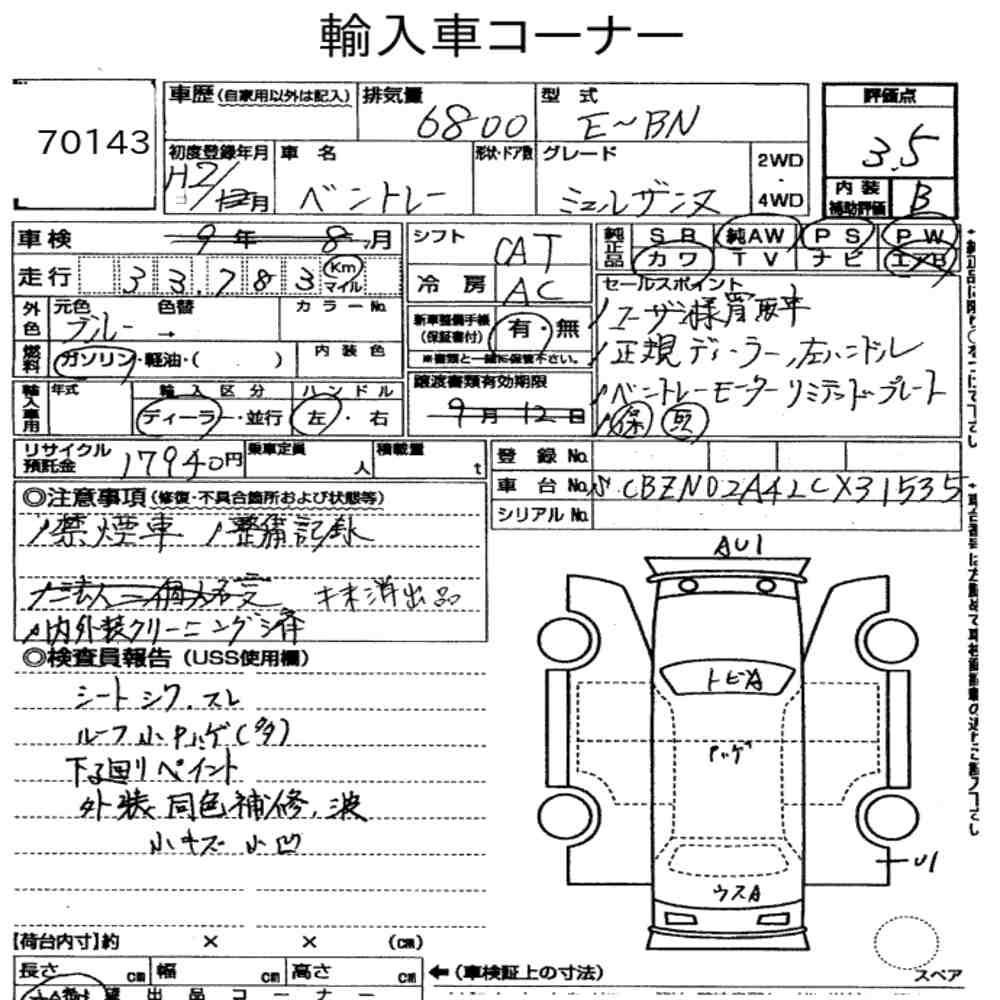 輸入車コーナー
70143
車歴(自家用以外は記入) 排気量 6800 型式 E~BN 評価点 3.5
初度登録年月 H2/12月 車名 ベントレー 形状・ドア数 グレード ミュルザンヌ 2WD・4WD
内装補助評価 B
車検 9年 8月 シフト CAT 純正品 SR 純AW PS PW
走行 33,783 Km マイル 冷房 AC カワ TV ナビ エアB
外色 元色 ブルー → 色替 カラーNo. 新車整備手帳(保証書付) 有・無
※書類と一緒に保管下さい。
セールスポイント
ユーザー様買取車
正規ディーラー,左ハンドル
ベントレーモーターリミテッドプレート
保 取
燃料 ガソリン・軽油・( ) 内装色
輸入車用 年式 輸入区分 ディーラー・並行 ハンドル 左・右
譲渡書類有効期限 9月12日
リサイクル預託金 17940円 乗車定員 人 積載量 t
登録No.
車台No. SCBZN02A4LCX31535
シリアルNo.
◎注意事項(修復・不具合箇所および状態等)
禁煙車 整備記録
内外装クリーニング済
◎検査員報告(USS使用欄)
シートシワ,スレ
ルーフ小Pハゲ(多)
下回りペイント
外装同色補修,波
小キズ 小凹
AU1
トビA
Pハゲ
ウスA
U1
スペア
【荷台内寸】約 × × (cm)
長さ cm 幅 cm 高さ cm ←(車検証上の寸法)